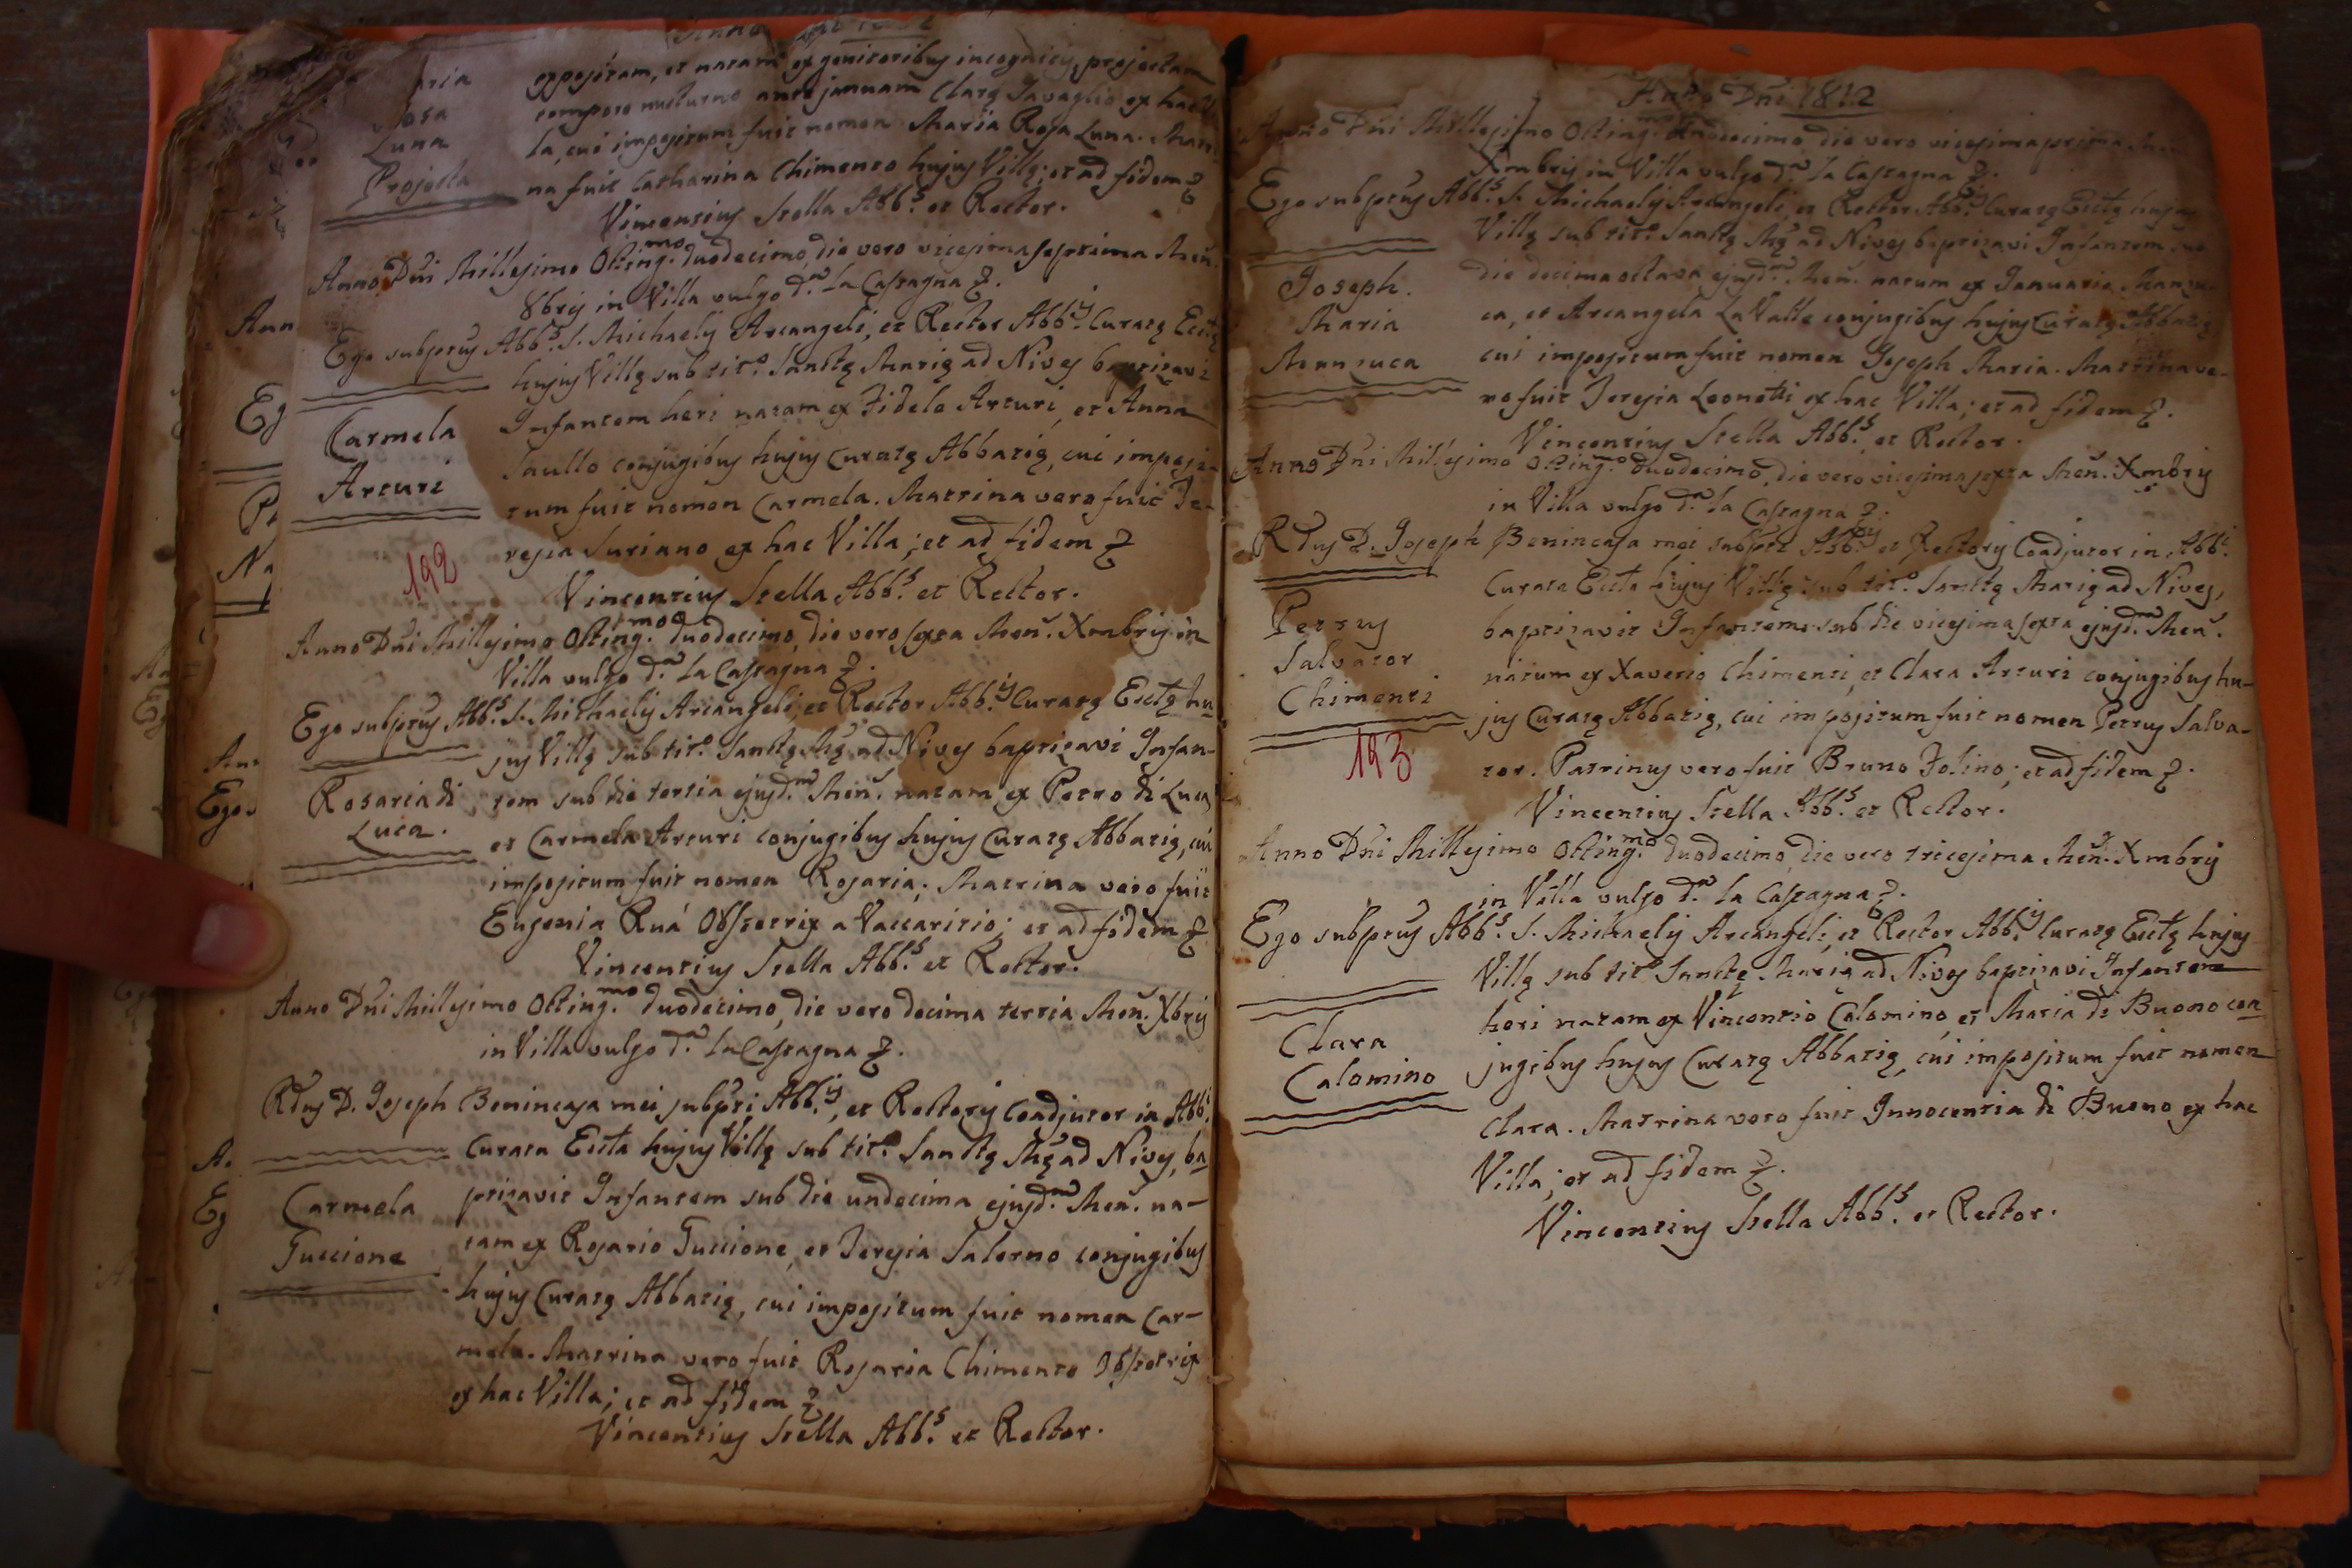 Maria
Rosa
Luna
Projecta
expositam, et natam ex genitoribus incognitis, projectam
tempore nocturno ante januam Clarę Savaglio ex hac Vil
la, cui impositum fuit nomen Maria Rosa Luna. Matri
na fuit Catharina Chimento hujus Villę; et ad fidem &
Vincentius Stella Abb.s et Rector.
Anno Dñi Millesimo Octing.mo duodecimo, die vero vicesima septima Men.
8bris in Villa vulgo d.a la Castagna &.
Ego subptus Abb.s S. Michaelis Arcangeli, et Rector Abb.is Curatę Ecctę
hujus Villę sub tit.o Sanctę Marię ad Nives baptizavi
Carmela
Arturi
Infantem heri natam ex Fidele Arturi, et Anna
Saullo conjugibus hujus Curatę Abbatię, cui imposi-
tum fuit nomen Carmela. Matrina vero fuit Te-
resia Suriano ex hac Villa; et ad fidem &
192
Vincentius Stella Abb.s et Rector.
Anno Dñi Millesimo Octing.mo duodecimo, die vero sexta Men. Xmbris in
Villa vulgo d.a la Castagna &.
Ego subptus Abb.s S. Michaelis Arcangeli, et Rector Abb.is Curatę Ecctę hu-
jus Villę sub tit.o Sanctę Mę ad Nives baptizavi Infan-
Rosaria di
Luca.
tem sub die tertia ejusd.m Men. natam ex Petro di Luca,
et Carmela Arturi conjugibus hujus Curatę Abbatię, cui
impositum fuit nomen Rosaria. Matrina vero fuit
Eugenia Ruá Obstetrix a Vaccaritio; et ad fidem &
Vincentius Stella Abb.s et Rector.
Anno Dñi Millesimo Octing.mo duodecimo, die vero decima tertia Men. Xbris
in Villa vulgo d.a la Castagna &.
Rdus D. Joseph Benincasa mei subpti Abb.is, et Rectoris Coadjutor in Abb.i
Curata Eccta hujus Villę sub tit.o Sanctę Mę ad Nives, ba
Carmela
Tuccione
ptizavit Infantem sub die undecima ejusd.m Men. na-
tam ex Rosario Tuccione, et Teresia Salerno conjugibus
hujus Curatę Abbatię, cui impositum fuit nomen Car-
mela. Matrina vero fuit Rosaria Chimento Obstetrix
ex hac Villa; et ad fidem &
Vincentius Stella Abb.s et Rector.
Ann
Eg
Ego
Anno Dñi 1812
Anno Dñi Millesimo Octing.mo duodecimo, die vero vicesima prima Men
Xmbris in Villa vulgo d.a la Castagna &.
Ego subptus Abb.s S. Michaelis Arcangeli, et Rector Abb.is Curatę Ecctę hujus
Villę sub tit.o Sanctę Mę ad Nives baptizavi Infantem sub
Joseph
Maria
Manzuca
die decima octava ejusd.m Men. natum ex Januario Manzu-
ca, et Arcangela La Valle conjugibus hujus Curatę Abbatię
cui impositum fuit nomen Joseph Maria. Matrina ve-
ro fuit Teresia Leonetti ex hac Villa; et ad fidem &.
Vincentius Stella Abb.s et Rector.
Anno Dñi Millesimo Octing.mo duodecimo, die vero vicesima sexta Men. Xmbris
in Villa vulgo d.a la Castagna &.
Rdus D. Joseph Benincasa mei subpti Abb.is et Rectoris Coadjutor in Abb.i
Curata Eccta hujus Villę sub tit.o Sanctę Marię ad Nives,
Petrus
Salvator
Chimenti
baptizavit Infantem sub die vicesima sexta ejusd.m Men.
natum ex Xaverio Chimenti, et Clara Arturi conjugibus hu-
jus Curatę Abbatię, cui impositum fuit nomen Petrus Salva-
193
tor. Patrinus vero fuit Bruno Folino; et ad fidem &.
Vincentius Stella Abb.s et Rector.
Anno Dñi Millesimo Octing.mo duodecimo, die vero tricesima Men. Xmbris
in Villa vulgo d.a la Castagna &.
Ego subptus Abb.s S. Michaelis Arcangeli, et Rector Abb.is Curatę Ecctę hujus
Villę sub tit.o Sanctę Marię ad Nives baptizavi Infantem
Clara
Calomino
heri natam ex Vincentio Calomino, et Maria di Buono con
jugibus hujus Curatę Abbatię, cui impositum fuit nomen
Clara. Matrina vero fuit Innocentia di Buono ex hac
Villa; et ad fidem &.
Vincentius Stella Abb.s et Rector.